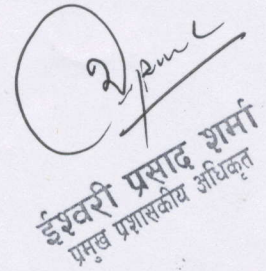 ईश्वरी प्रसाद शर्मा
प्रमुख प्रशासकीय अधिकृत